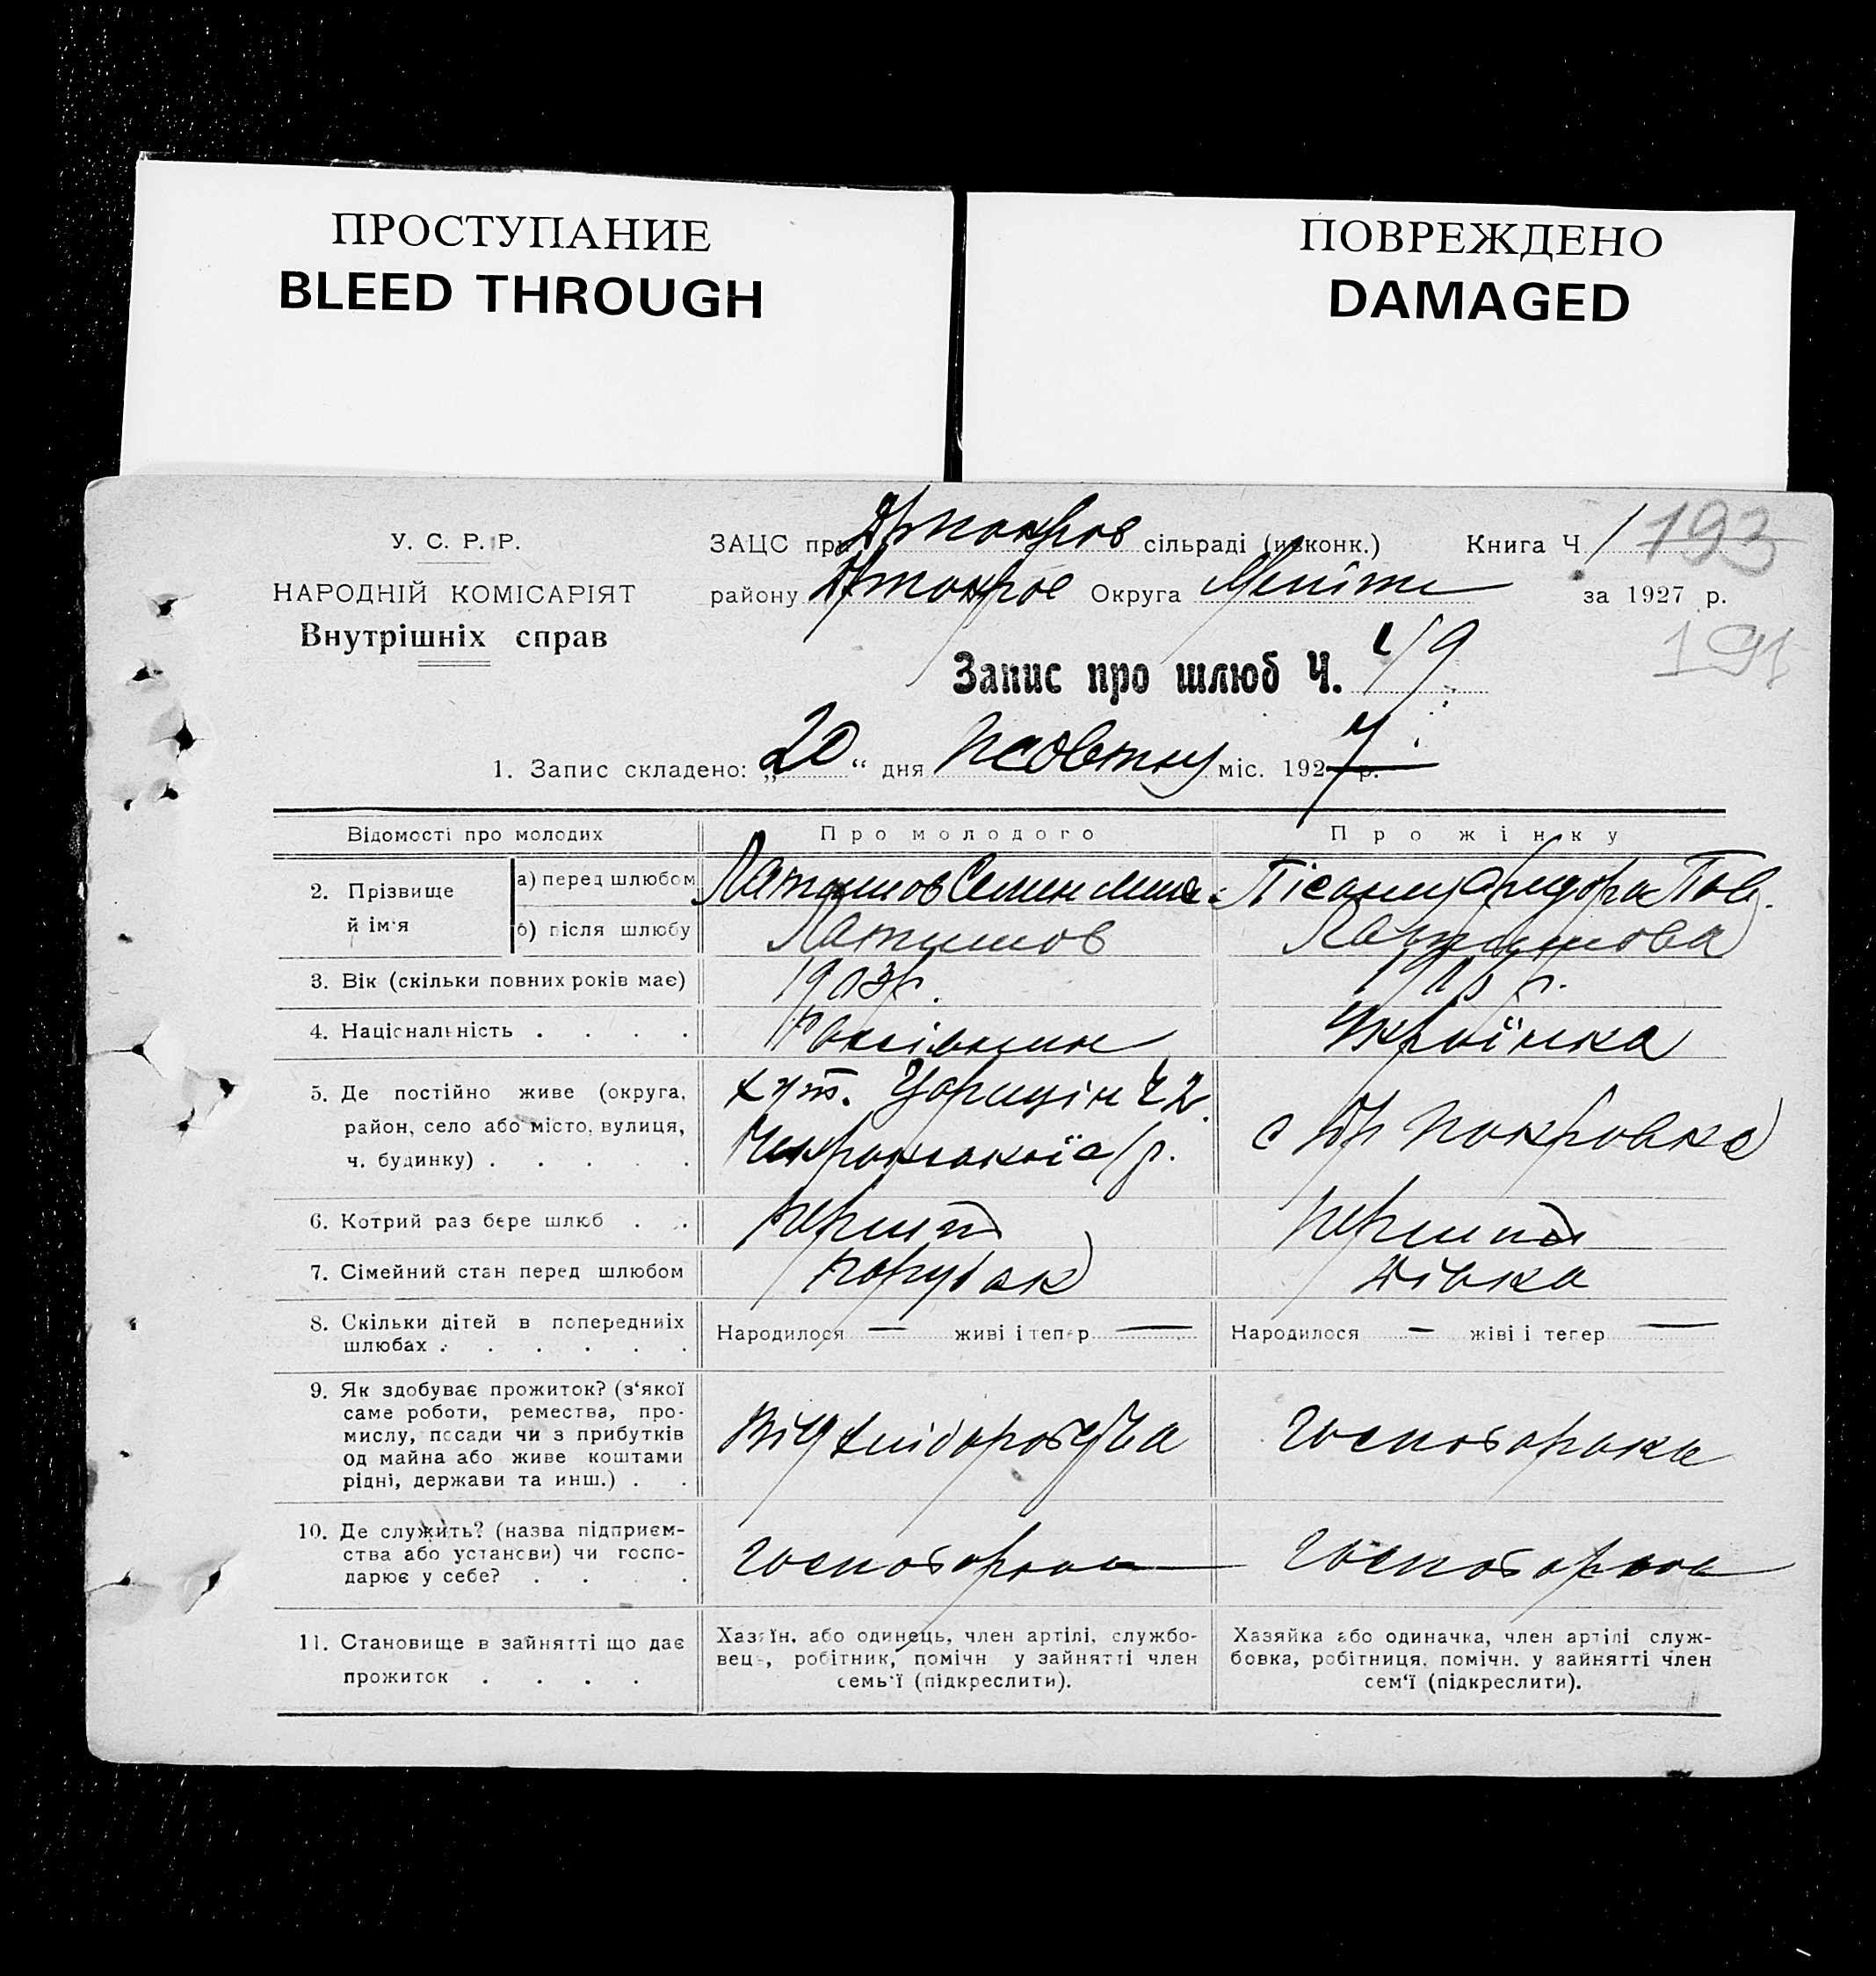 ПРОСТУПАНИЕ
BLEED THROUGH
ПОВРЕЖДЕНО
DAMAGED
У. С. Р. Р.
НАРОДНІЙ КОМІСАРІЯТ
Внутрішніх справ
ЗАЦС при сільраді (ивконк.) Книга Ч 1 193
району Округа Меліт за 1927 р.
191
Запис про шлюб Ч. 49
1. Запис складено: „20“ дня жовтня міс. 1927 р.
Відомості про молодих Про молодого Про жінку
2. Прізвище й ім'я
а) перед шлюбом Латишов Семен Пав.
б) після шлюбу Латишов Латишова
3. Вік (скільки повних років має) 1903 р.
4. Національність . . . . Українка
5. Де постійно живе (округа, район, село або місто, вулиця, ч. будинку) . . . . .
хут. Царицін Ч 2 с/р.
с Покровка
6. Котрий раз бере шлюб . . перший перший
7. Сімейний стан перед шлюбом парубок дівка
8. Скільки дітей в попередниіх шлюбах . . . . . .
Народилося — живі і тепер —
Народилося — жіві і тепер —
9. Як здобуває прожиток? (з'якої саме роботи, ремества, промислу, посади чи з прибутків од майна або живе коштами рідні, держави та инш.) . .
Від хліборобства
10. Де служить? (назва підприємства або установи) чи господарює у себе? . . . .
11. Становище в зайнятті що дає прожиток . . . .
Хазяїн, або одинець, член артілі, службовець, робітник, помічн у зайнятті член семь'ї (підкреслити).
Хазяйка або одиначка, член артілі службовка, робітниця, помічн. у зайнятті член сем'ї (підкреслити).